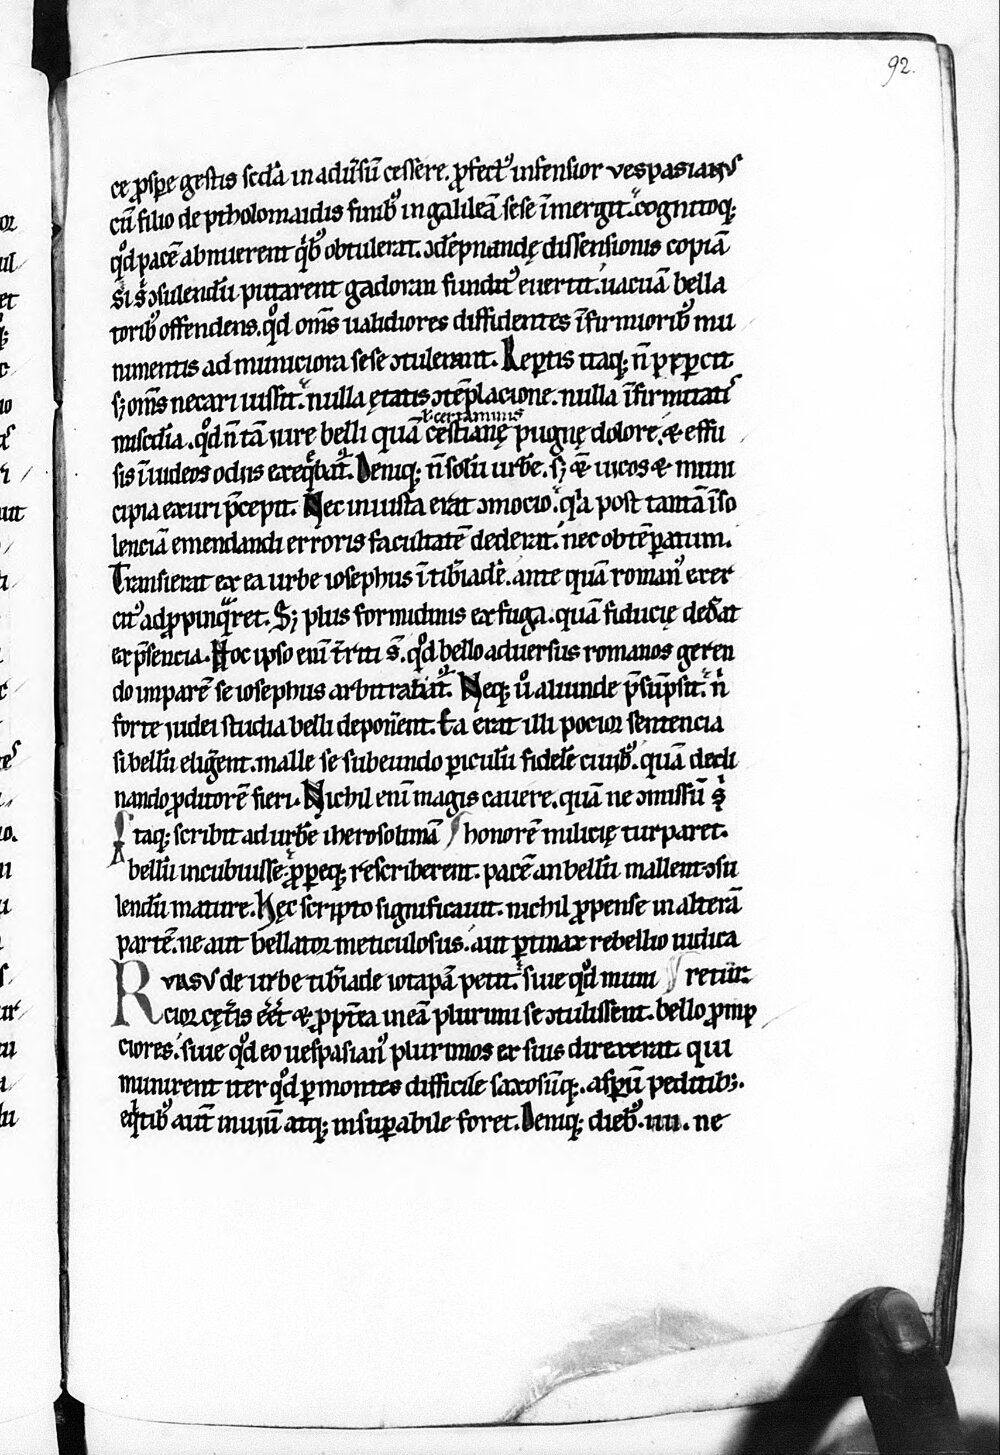 92.
ce ꝓspe gestis scda in adũsũ cessere. ꝓfectꝰ infensior vespasianꝰ
cũ filio de ptholomaidis finibꝰ in galileã sese ĩmergit. cognitoq;
qd pacẽ abnuerent qͥbꝰ obtulerat. ↄdẽpnandę dissensionis copiã
si s̃ ↄsulendũ putarent gadoran funditꝰ euertit. uacuã bella
toribꝰ offendens. qd om̃s ualidiores diffidentes ĩfirmioribꝰ mu
nimentis ad municiora sese ↄtulerant. Reptis itaq; ñ ꝑꝑcit
sꝫ om̃s necari iussit. nulla ętatis ↄtẽplacione. nulla ĩfirmitatis
l certaminis
miscdia. qd ñ tã iure belli quã cestianę pugnę dolore. & effu
sis ĩ iudeos odiis exeqͣbatᷣ. Deniq; ñ solũ urbẽ. sꝫ & uicos & muni
cipia exuri p̃cepit. Nec iniusta erat ↄmocio. qͥa post tantã ĩso
lenciã emendandi erroris facultatẽ dederat. nec obtẽꝑatum.
Transierat ex ea urbe iosephus ĩ tibiadẽ. ante quã romanꝰ exer
citꝰ adꝓpinqͣret. Sꝫ plus formidinis ex fuga. quã fiducię dedat
ex p̃sencia. Hoc ipso enĩ t̃riti s̃. qd bello aduersus romanos geren
do imparẽ se iosephus arbitratᷣ. Neq; ů aliunde p̃sũpsit. ñ
forte iudei studia belli deponẽent. Ea erat illi pocior sentencia
si bellũ eligẽent. malle se subeundo ꝑiculũ fidelẽ ciuibꝰ. quã decli
nando ꝓditorẽ fieri. Nichil enĩ magis cauere. quã ne ↄmissũ s̃
Itaq; scribit ad urbẽ iherosolimã honorẽ milicię turparet.
bellũ incubuisse ꝓꝑeq; rescriberent. pacẽ an bellũ mallent ↄsu
lendũ mature. Hęc scripto significauit. nichil ꝓpense in alterã
partẽ. ne aut bellator meticulosus. aut ꝑtinax rebellio iudica
RVRSVS de urbe tibiade iotapã petit. siue qd muni retur.
cior cęt̃is eẽt & ꝓpt̃ea in eã plurimi se ↄtulissent. bello ꝓmp
ciores. siue qd eo uespasianꝰ plurimos ex suis direxerat. qui
munirent iter qd ꝑ montes difficile saxosũq;. aspũ peditibꝫ.
eqͥtibꝰ autẽ inuiũ atq; insuꝑabile foret. Deniq; diebꝰ. iiii. ne